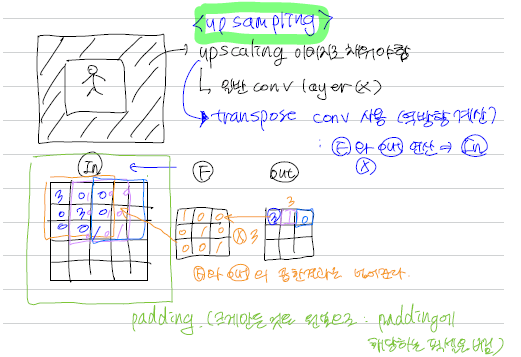 <up sampling>
upscaling 이미지로 채워야함
↳ 일반 conv layer (X)
transpose conv 사용 (역방향 계산)
: Ⓕ와 out 연산 ⇒ In
In F out
3
3 0 0
0 3 0 0
0 0 0 1
1 0 0
0 0 0
0 0 1
ⓧ 3
3 1 0
F와 out의 곱한결과는 더해준다.
padding (크게만든 것을 원본으로 : padding에
해당하는 픽셀은 버림)